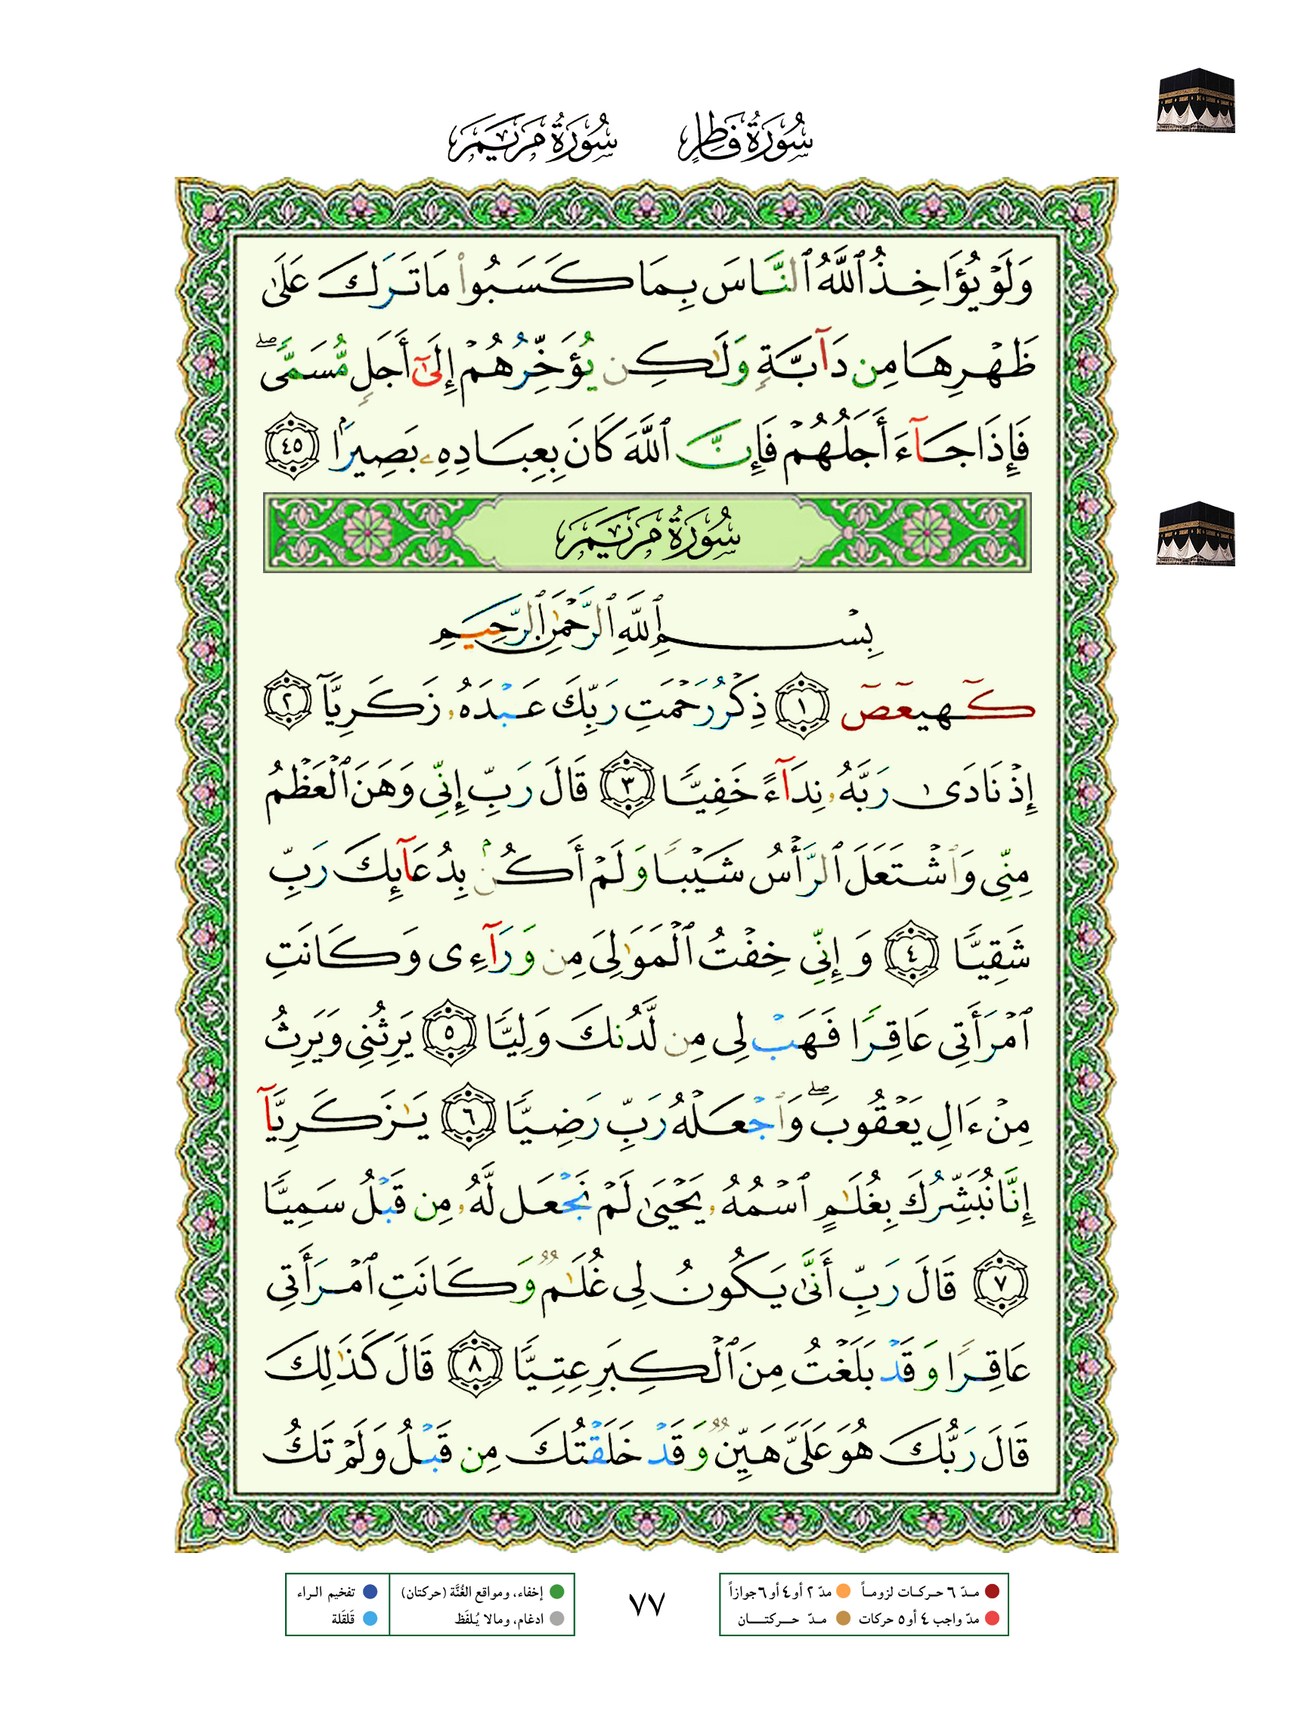 سُورَةُ فَاطِرٍ سُورَةُ مَرْيَمَ
وَلَوْ يُؤَاخِذُ ٱللَّهُ ٱلنَّاسَ بِمَا كَسَبُوا۟ مَا تَرَكَ عَلَىٰ
ظَهْرِهَا مِن دَآبَّةٍ وَلَٰكِن يُؤَخِّرُهُمْ إِلَىٰٓ أَجَلٍ مُّسَمًّى ۖ
فَإِذَا جَآءَ أَجَلُهُمْ فَإِنَّ ٱللَّهَ كَانَ بِعِبَادِهِۦ بَصِيرًۢا ٤٥
سُورَةُ مَرْيَمَ
بِسْمِ ٱللَّهِ ٱلرَّحْمَٰنِ ٱلرَّحِيمِ
كٓهيعٓصٓ ١ ذِكْرُ رَحْمَتِ رَبِّكَ عَبْدَهُۥ زَكَرِيَّآ ٢
إِذْ نَادَىٰ رَبَّهُۥ نِدَآءً خَفِيًّا ٣ قَالَ رَبِّ إِنِّى وَهَنَ ٱلْعَظْمُ
مِنِّى وَٱشْتَعَلَ ٱلرَّأْسُ شَيْبًا وَلَمْ أَكُنۢ بِدُعَآئِكَ رَبِّ
شَقِيًّا ٤ وَإِنِّى خِفْتُ ٱلْمَوَٰلِىَ مِن وَرَآءِى وَكَانَتِ
ٱمْرَأَتِى عَاقِرًا فَهَبْ لِى مِن لَّدُنكَ وَلِيًّا ٥ يَرِثُنِى وَيَرِثُ
مِنْ ءَالِ يَعْقُوبَ ۖ وَٱجْعَلْهُ رَبِّ رَضِيًّا ٦ يَٰزَكَرِيَّآ
إِنَّا نُبَشِّرُكَ بِغُلَٰمٍ ٱسْمُهُۥ يَحْيَىٰ لَمْ نَجْعَل لَّهُۥ مِن قَبْلُ سَمِيًّا
٧ قَالَ رَبِّ أَنَّىٰ يَكُونُ لِى غُلَٰمٌ وَكَانَتِ ٱمْرَأَتِى
عَاقِرًا وَقَدْ بَلَغْتُ مِنَ ٱلْكِبَرِ عِتِيًّا ٨ قَالَ كَذَٰلِكَ
قَالَ رَبُّكَ هُوَ عَلَىَّ هَيِّنٌ وَقَدْ خَلَقْتُكَ مِن قَبْلُ وَلَمْ تَكُ
مدّ ٦ حركات لزوماً مدّ ٢ أو ٤ أو ٦ جوازاً
مدّ واجب ٤ أو ٥ حركات مدّ حركتان
٧٧
إخفاء، ومواقع الغُنَّة (حركتان) تفخيم الراء
ادغام، ومالا يُلفَظ قَلقَلة